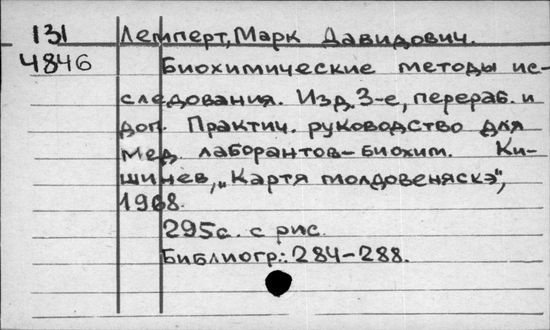 131 Лемперт, Марк Давидович.
4846 Биохимические методы ис-
следования. Изд. 3-е, перераб. и
доп. Практич. руководство для
мед. лаборантов-биохим. Ки-
шинев, „Картя молдовеняскэ",
1968.
295с. с рис.
Библиогр.: 284-288.